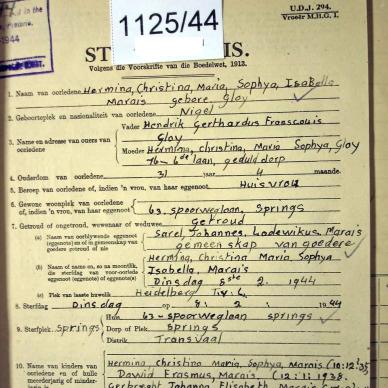 U.D.J. 294.
Vroeër M.H.G. I.
1125/44
-1944
ST
IS.
Volgens die Voorskrifte van die Boedelwet, 1913.
1. Naam van oorledene Hermina, Christina, Maria, Sophya, Isabella
Marais gebore Gloy
2. Geboorteplek en nasionaliteit van oorledene Nigel
Vader Hendrik Gerthardus Franscouis
Gloy
3. Naam en adresse van ouers van oorledene
Moeder Hermina, Christina, Maria Sophya, Gloy
76-6de laan, geduld dorp
4. Ouderdom van oorledene 31 jaar 4 maande.
5. Beroep van oorledene of, indien 'n vrou, van haar eggenoot Huisvrou
6. Gewone woonplek van oorledene of, indien 'n vrou, van haar eggenoot 63. spoorweglaan, Springs
7. Getroud of ongetroud, wewenaar of weduwee Getroud
(a) Naam van oorblywende eggenoot (eggenote) en of in gemeenskap van goedere getroud of nie
Sarel, Johannes, Lodewikus, Marais
gemeenskap van goedere
(b) Naam of name en, so na moontlik, die sterfdag van voor-oorlede eggenoot (eggenote) of eggenotes
Hermina, Christina, Maria, Sophya
Isabella, Marais
Dinsdag 8ste 2. 1944
(c) Plek van laaste huwelik Heidelberg Tvl.
8. Sterfdag Dinsdag 8 : 2 : 1944
Huis 63 - spoorweglaan springs
9. Sterfplek. Springs Dorp of Plek Springs
Distrik Transvaal
10. Naam van kinders van oorledene en of hulle meerderjarig of minder-
Hermina, christina Maria, Sophya, Marais (10:12:35)
Dawid Erasmus, Marais (12:1:1938.
Gerbrecht Johanna Elisabeth Marais